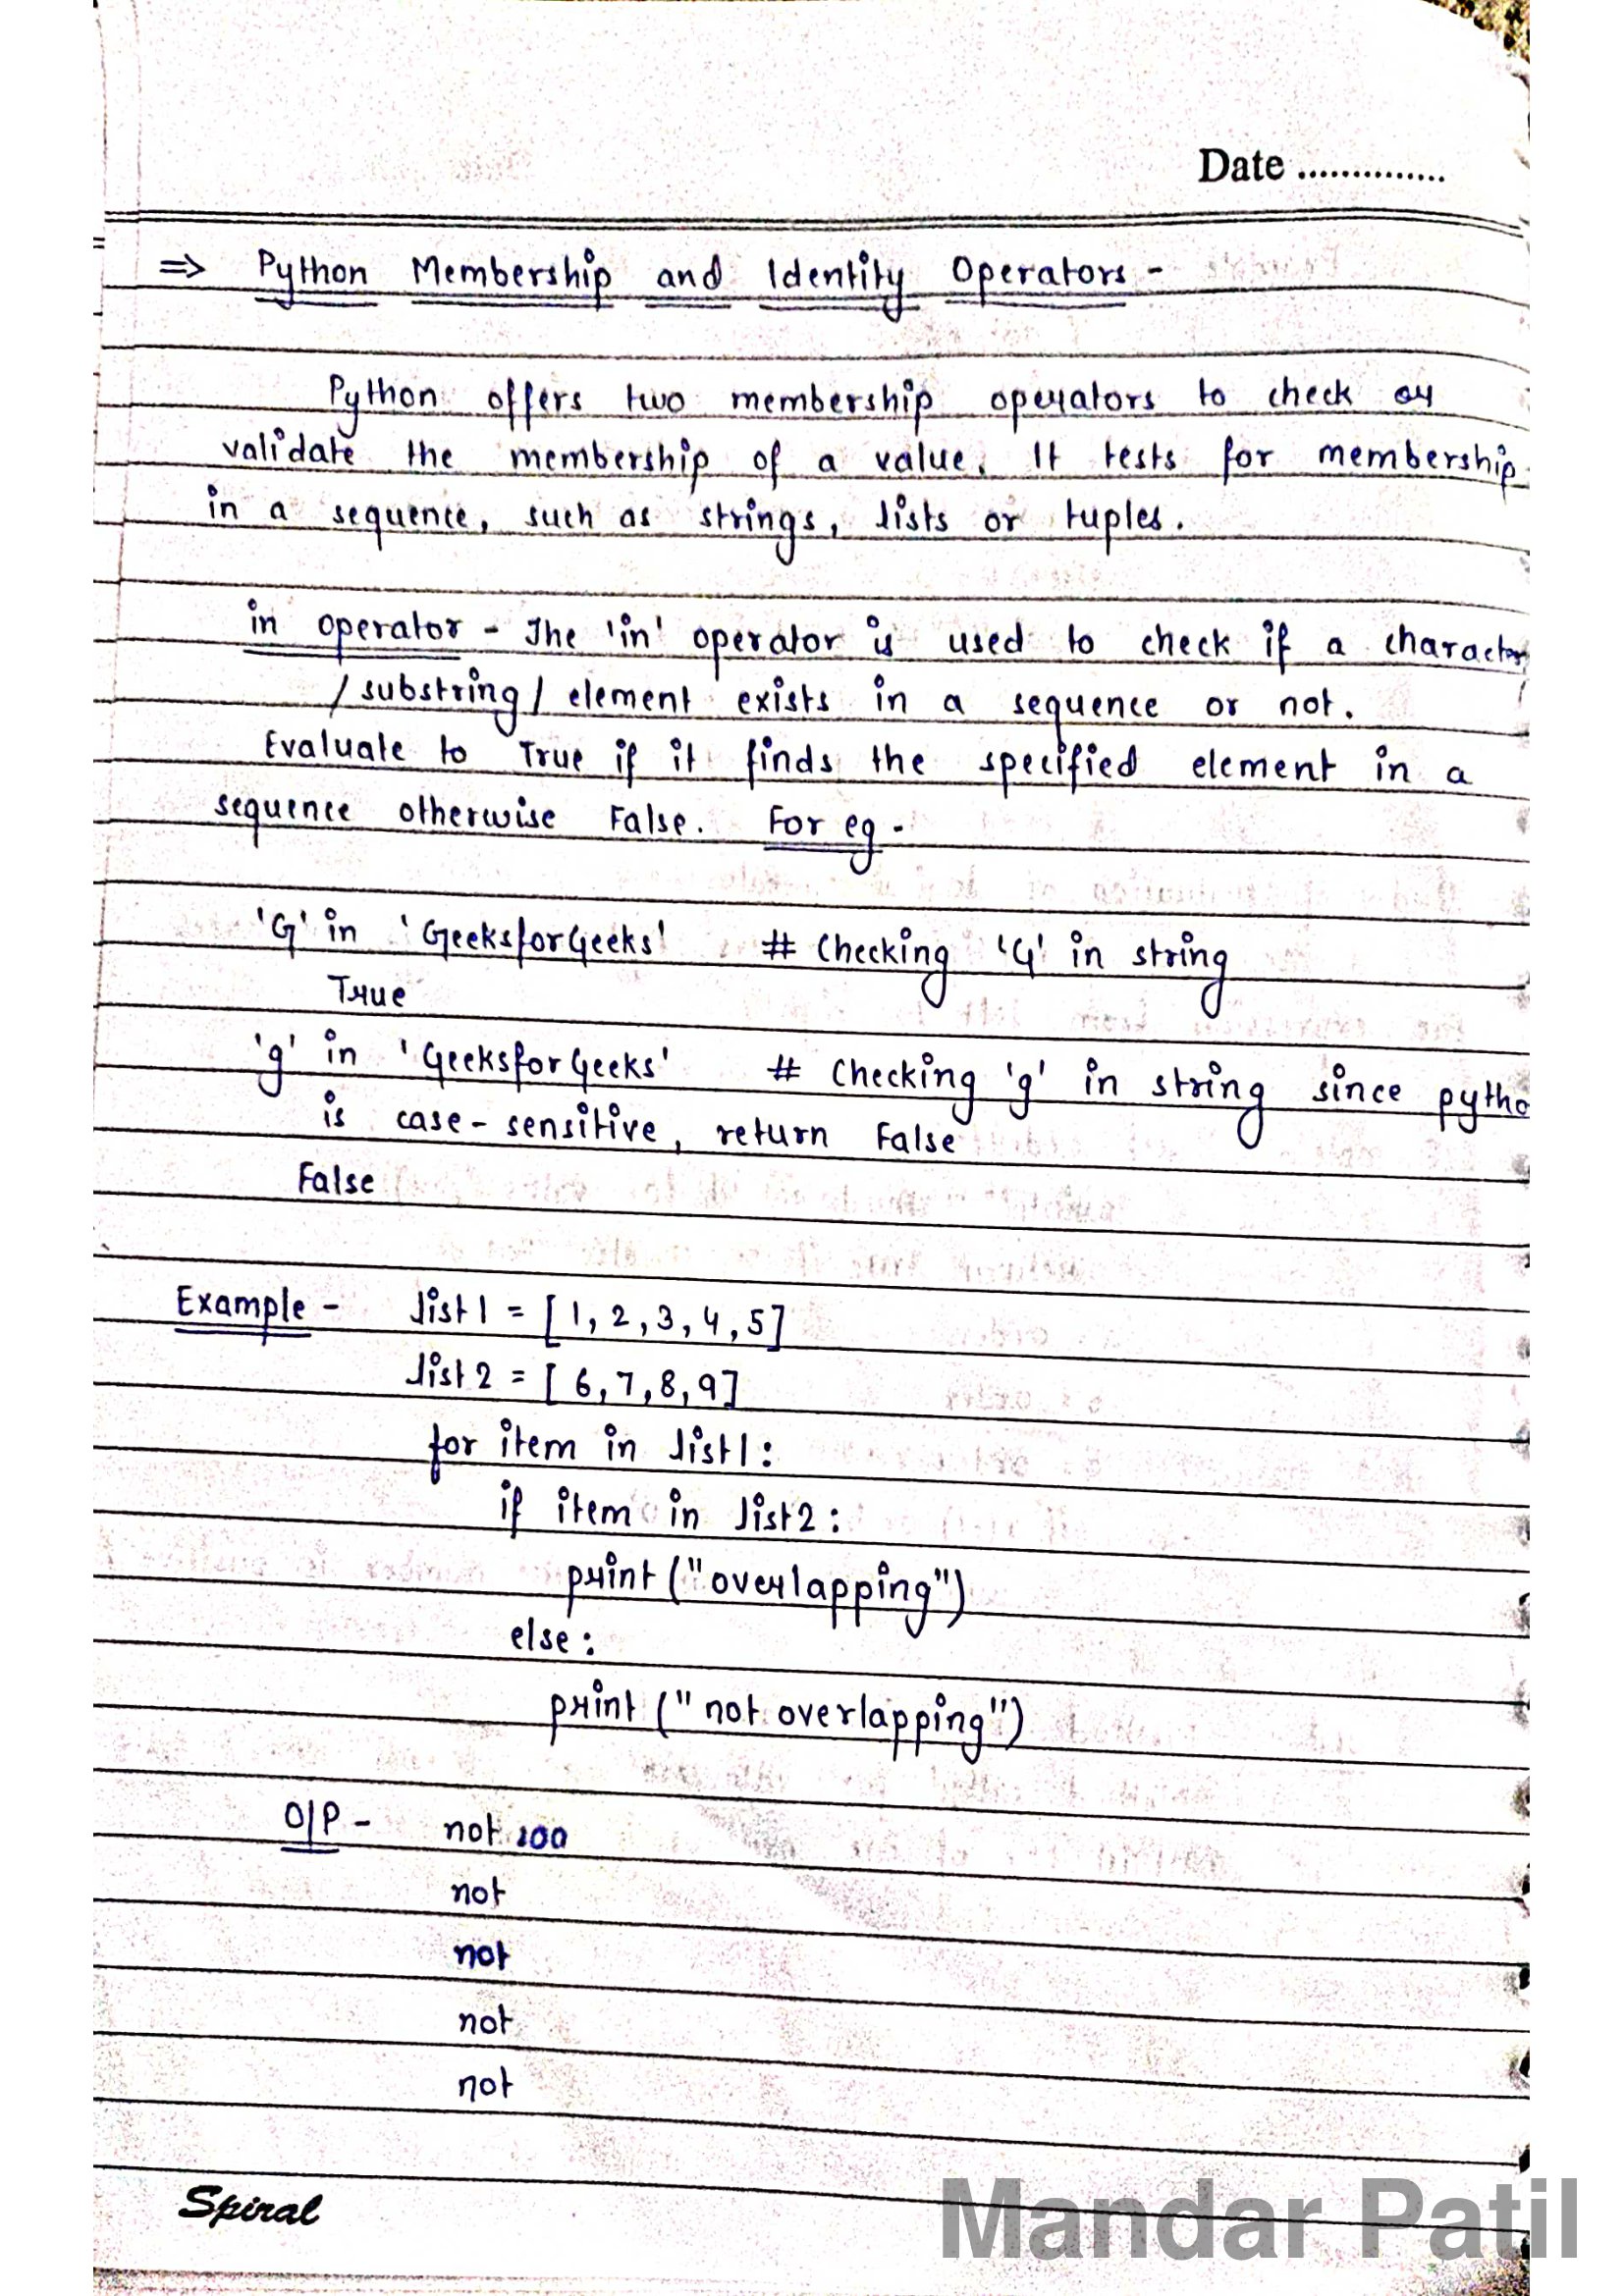 Date ..............
=> Python Membership and Identity Operators -
Python offers two membership operators to check or
validate the membership of a value. It tests for membership
in a sequence, such as strings, lists or tuples.
in operator - The 'in' operator is used to check if a character
/ substring / element exists in a sequence or not.
Evaluate to True if it finds the specified element in a
sequence otherwise False. For eg -
'G' in 'GeeksforGeeks' # Checking 'G' in string
True
'g' in 'GeeksforGeeks' # Checking 'g' in string since pytho
is case-sensitive, return False
False
Example - list1 = [1, 2, 3, 4, 5]
list2 = [6, 7, 8, 9]
for item in list1:
if item in list2:
print ("overlapping")
else:
print ("not overlapping")
O/P - not
not
not
not
not
Spiral
Mandar Patil